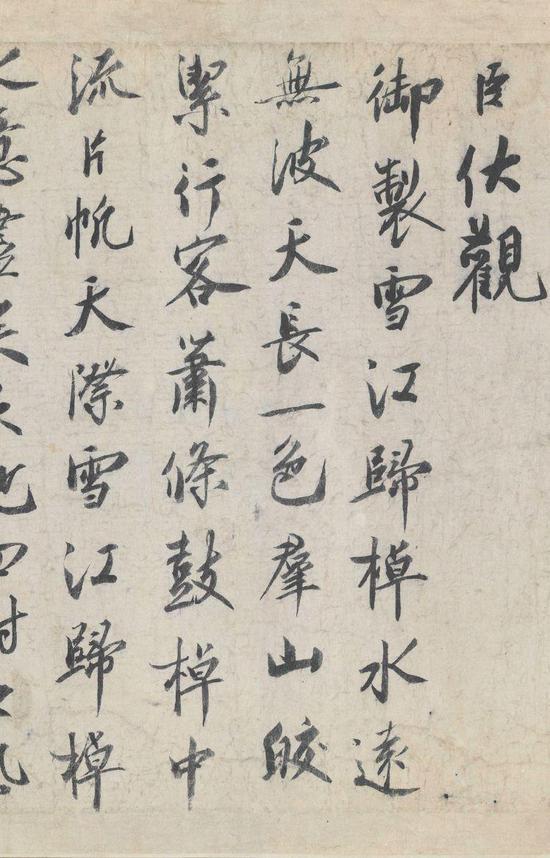 臣伏觀
御製雪江歸棹水遠
無波天長一色羣山皎
絜行客蕭條鼓棹中
流片帆天際雪江歸棹